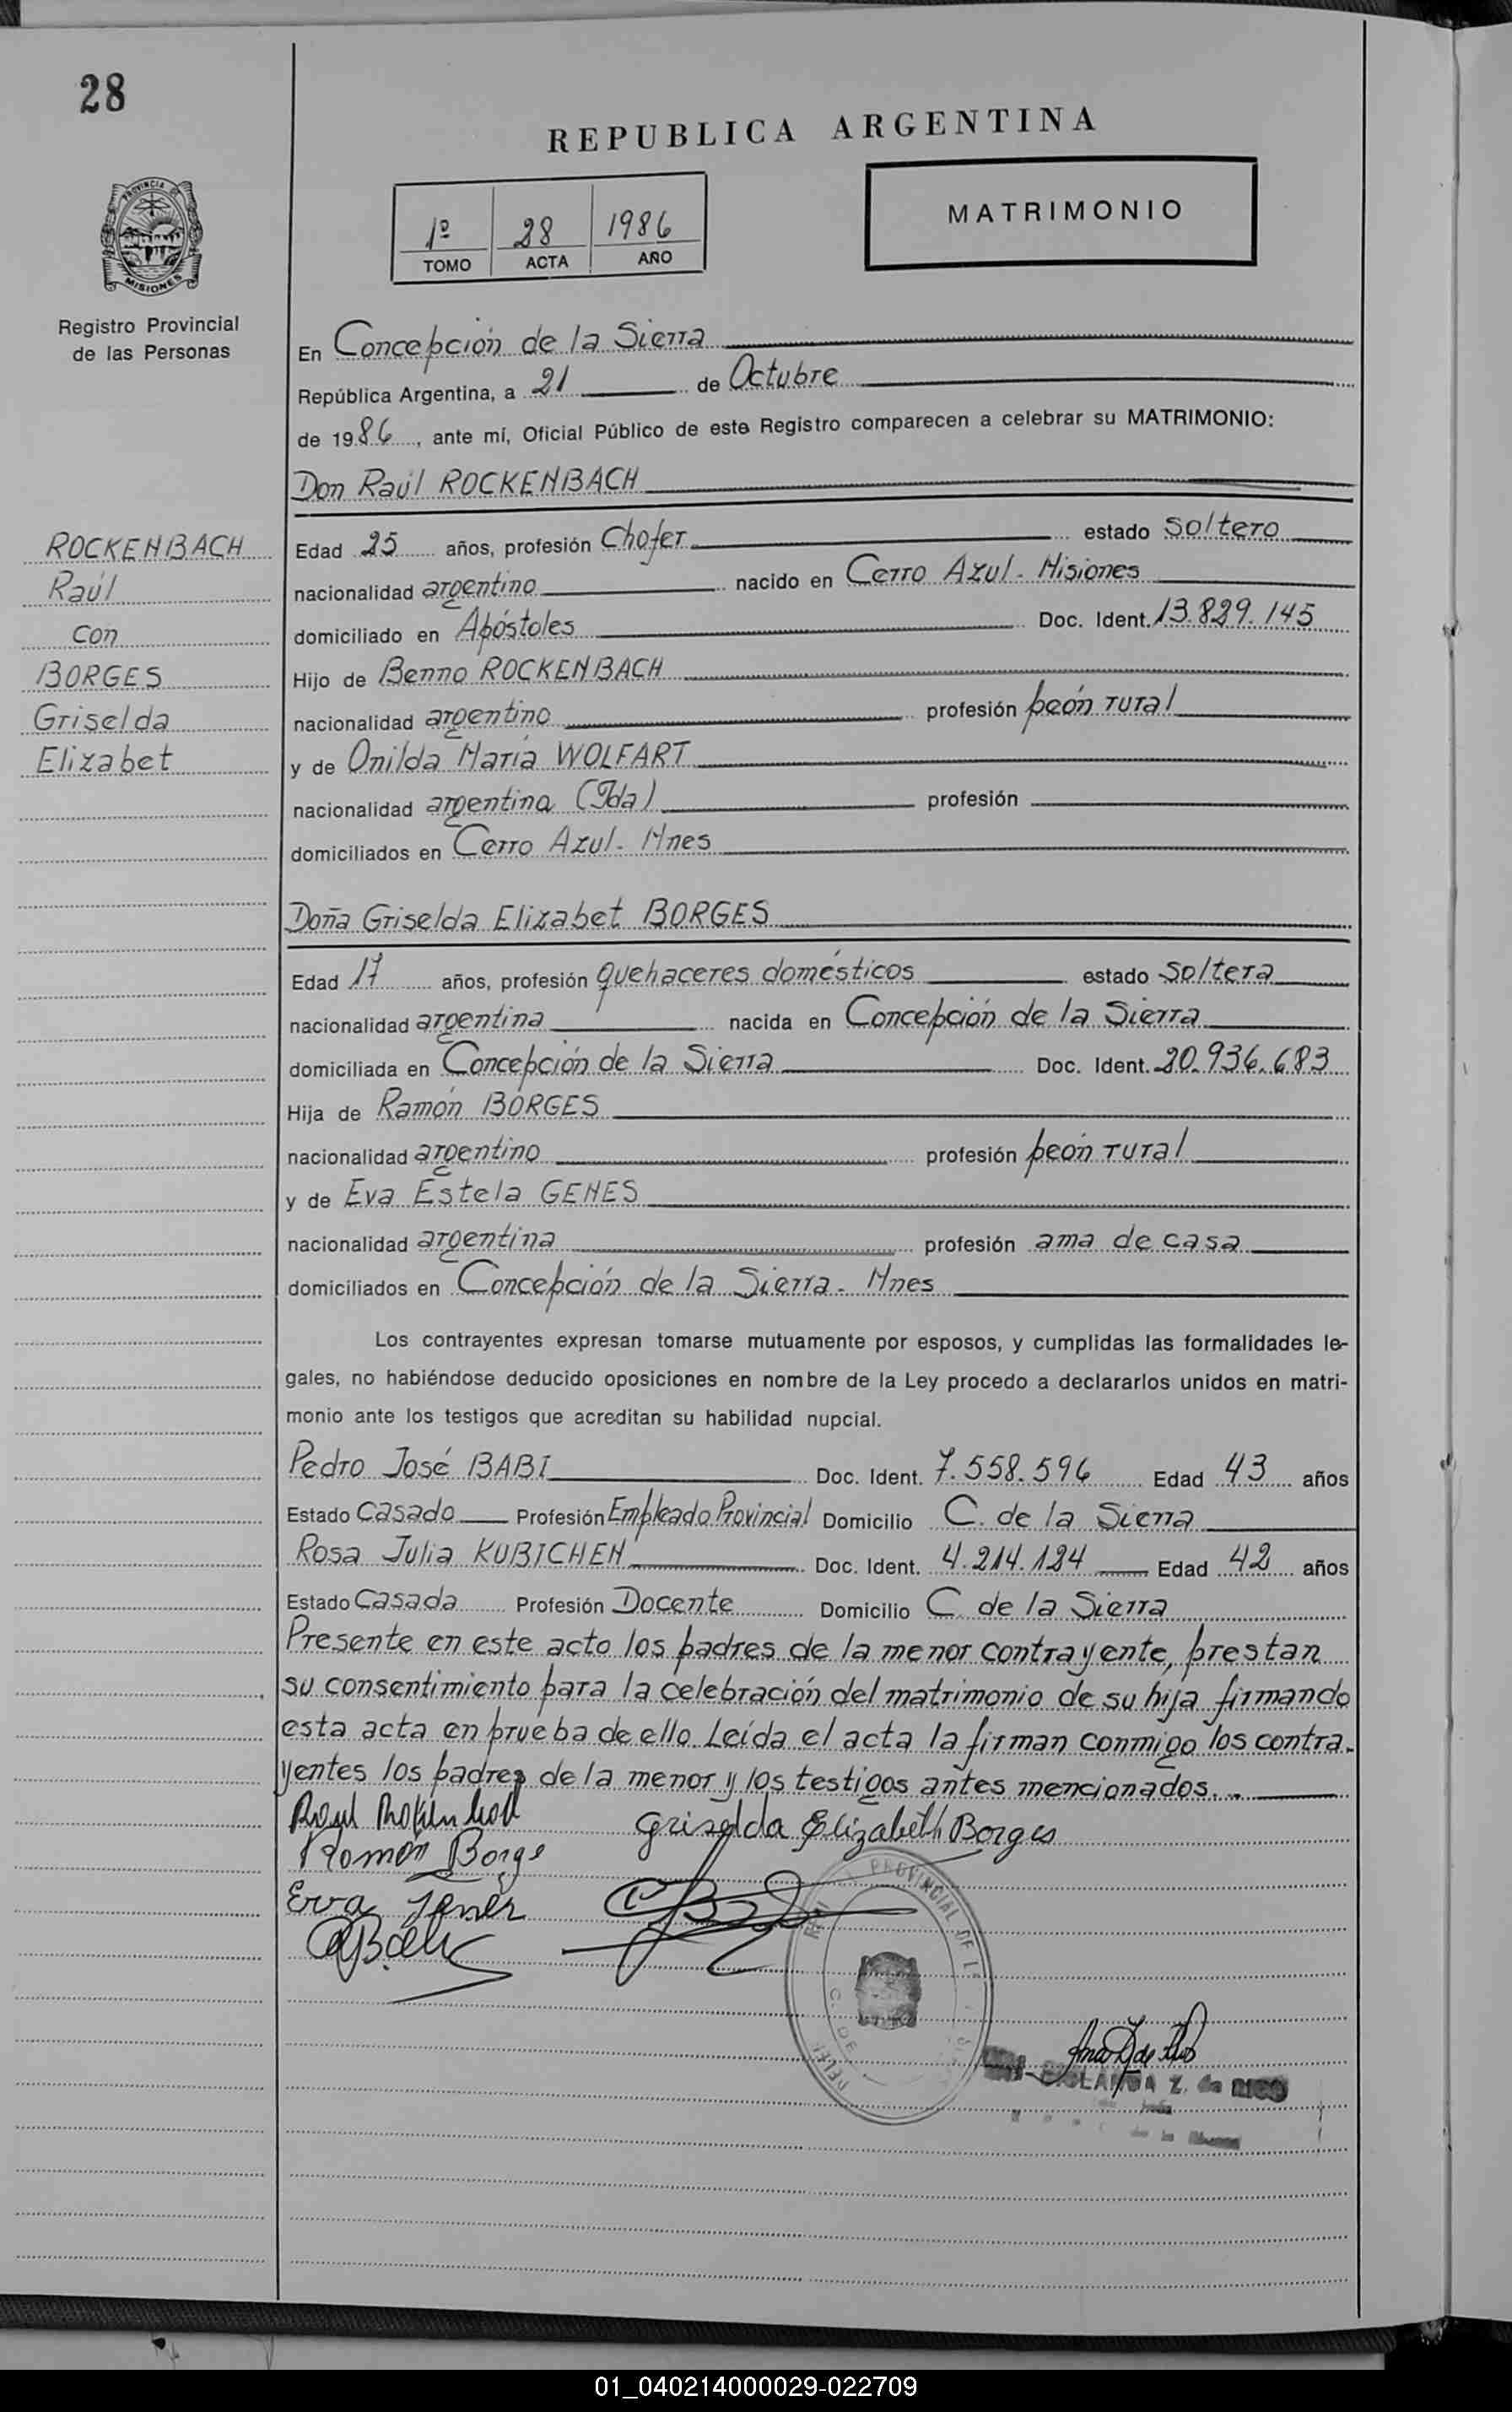 28
REPUBLICA ARGENTINA
PROVINCIA DE
MISIONES
Registro Provincial
de las Personas
1º 28 1986
TOMO ACTA AÑO
MATRIMONIO
En Concepción de la Sierra
República Argentina, a 21 de Octubre
de 1986, ante mí, Oficial Público de este Registro comparecen a celebrar su MATRIMONIO:
Don Raúl ROCKENBACH
ROCKENBACH
Raúl
con
BORGES
Griselda
Elizabet
Edad 25 años, profesión Chofer estado soltero
nacionalidad argentino nacido en Cerro Azul - Misiones
domiciliado en Apóstoles Doc. Ident. 13.829.145
Hijo de Benno ROCKENBACH
nacionalidad argentino profesión peón rural
y de Onilda María WOLFART
nacionalidad argentina (Fda) profesión
domiciliados en Cerro Azul - Mnes
Doña Griselda Elizabet BORGES
Edad 17 años, profesión quehaceres domésticos estado soltera
nacionalidad argentina nacida en Concepción de la Sierra
domiciliada en Concepción de la Sierra Doc. Ident. 20.936.683
Hija de Ramón BORGES
nacionalidad argentino profesión peón rural
y de Eva Estela GENES
nacionalidad argentina profesión ama de casa
domiciliados en Concepción de la Sierra - Mnes
Los contrayentes expresan tomarse mutuamente por esposos, y cumplidas las formalidades le-
gales, no habiéndose deducido oposiciones en nombre de la Ley procedo a declararlos unidos en matri-
monio ante los testigos que acreditan su habilidad nupcial.
Pedro José BABI Doc. Ident. 7.558.596 Edad 43 años
Estado Casado Profesión Empleado Provincial Domicilio C. de la Sierra
Rosa Julia KUBICHEN Doc. Ident. 4.214.124 Edad 42 años
Estado Casada Profesión Docente Domicilio C. de la Sierra
Presente en este acto los padres de la menor contrayente, prestan
su consentimiento para la celebración del matrimonio de su hija firmando
esta acta en prueba de ello. Leída el acta la firman conmigo los contra-
yentes los padres de la menor y los testigos antes mencionados.
Griselda Elizabeth Borges
Ramón Borge
Eva Jenes
PROVINCIAL DE
Z. de RICO
01_040214000029-022709